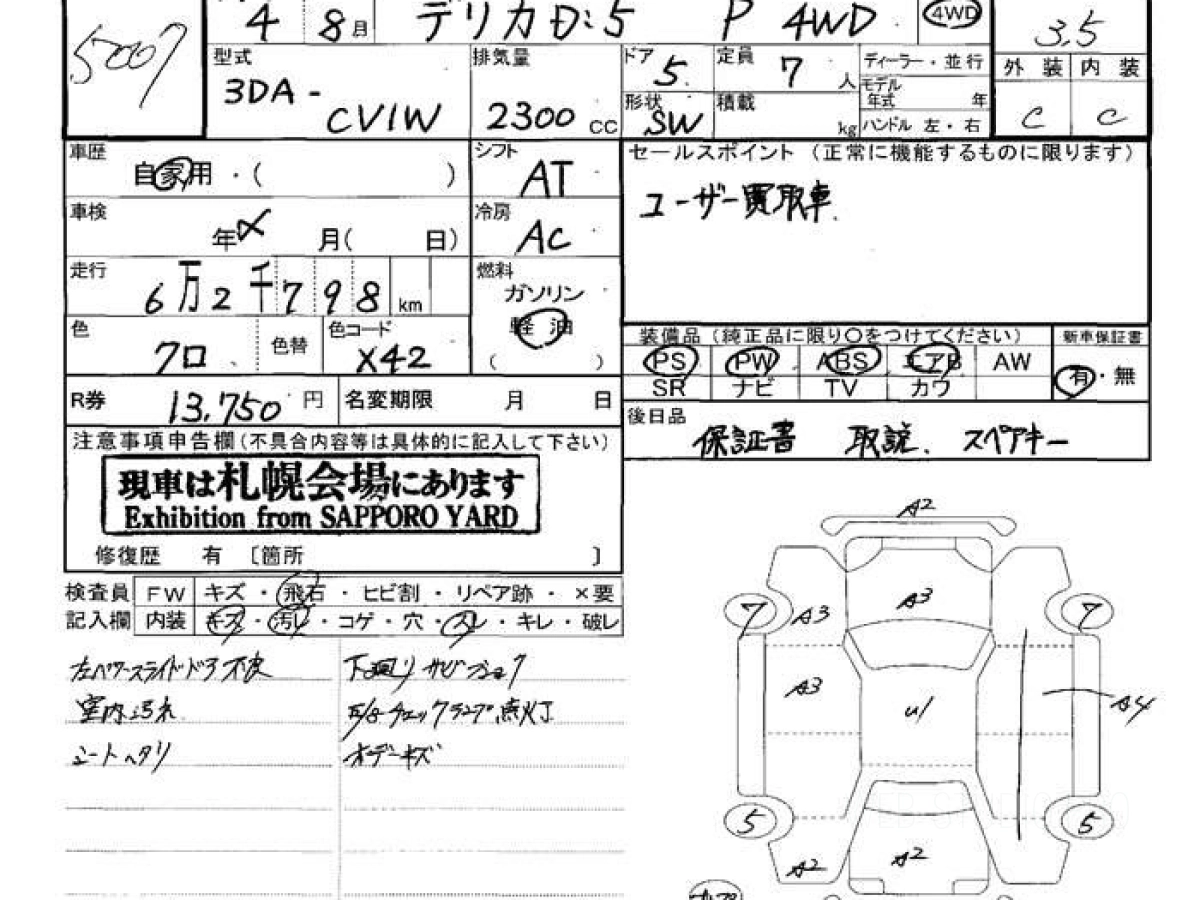 5007
4 8月 デリカD:5 P 4WD 4WD 3.5
型式 3DA- CV1W
排気量 2300 CC
ドア 5
定員 7 人
形状 SW
積載 kg
ディーラー・並行
モデル年式 年
ハンドル 左・右
外装 内装
C C
車歴 自家用・( )
シフト AT
車検 年 〆 月( 日)
冷房 AC
走行 6万2千798 km
燃料 ガソリン 軽油 ( )
色 クロ 色替
色コード X42
R券 13,750 円
名変期限 月 日
セールスポイント (正常に機能するものに限ります)
ユーザー買取車.
装備品 (純正品に限り〇をつけてください)
新車保証書
PS PW ABS エアB AW
SR ナビ TV カワ
有・無
後日品
保証書 取説. スペアキー
注意事項申告欄(不具合内容等は具体的に記入して下さい)
現車は札幌会場にあります
Exhibition from SAPPORO YARD
修復歴 有 [箇所 ]
検査員 FW キズ・飛石・ヒビ割・リペア跡・×要
記入欄 内装 キズ・汚レ・コゲ・穴・スレ・キレ・破レ
左パワースライドドア不良
室内汚れ
シートヘタリ
下廻りサビ
E/Gチェックランプ点灯
A2
A3
7 A3 7
A3 U1 A4
5 5
A2 A2